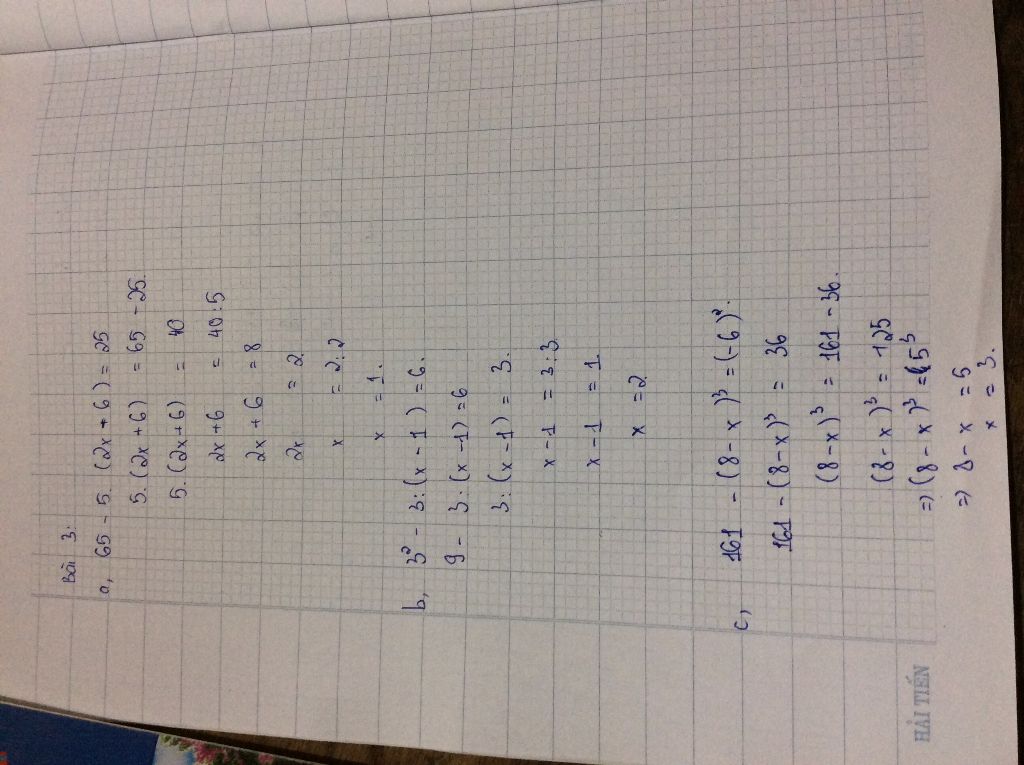 Bài 3:
a, 65 - 5. (2x + 6) = 25
5. (2x + 6) = 65 - 25.
5. (2x + 6) = 40
2x + 6 = 40 : 5
2x + 6 = 8
2x = 2
x = 2 : 2
x = 1.
b, 3² - 3 : (x - 1) = 6.
9 - 3 : (x - 1) = 6
3 : (x - 1) = 3.
x - 1 = 3 : 3
x - 1 = 1
x = 2
c, 161 - (8 - x)³ = (-6)².
161 - (8 - x)³ = 36
(8 - x)³ = 161 - 36.
(8 - x)³ = 125
=> (8 - x)³ = 5³
=> 8 - x = 5
x = 3.
HẢI TIẾN